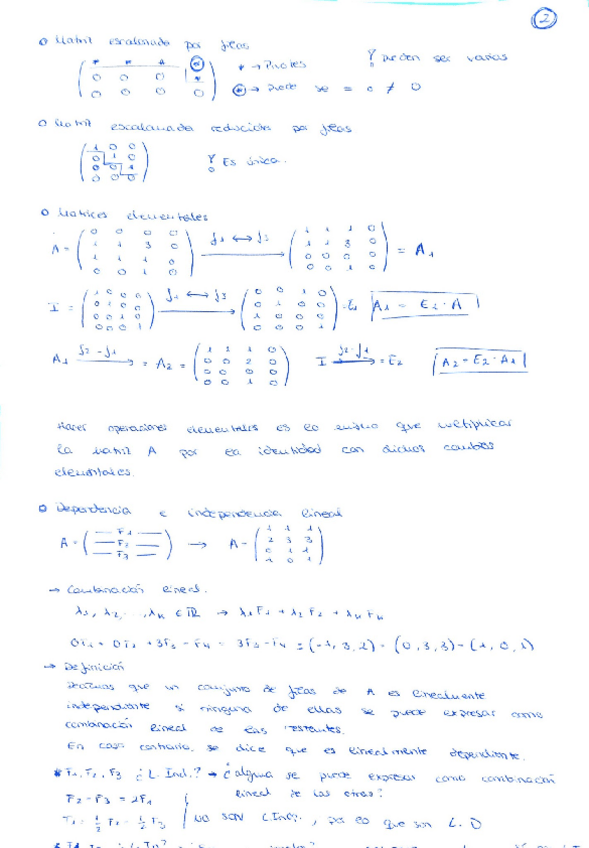 2
o Matriz escalonada por filas
* → Pivotes
! pueden ser varias
⊛ → puede se = o ≠ 0
o Matriz escalonada reducida por filas
1 0 0
0 1 0
0 0 1
0 0 0
! Es única.
o Matrices elementales
A = ( 0 0 0 0
1 1 3 0
1 1 1 0
0 0 1 0 ) f1 ↔ f3 ( 1 1 1 0
1 1 3 0
0 0 0 0
0 0 1 0 ) = A1
I = ( 1 0 0 0
0 1 0 0
0 0 1 0
0 0 0 1 ) f1 ↔ f3 ( 0 0 1 0
0 1 0 0
1 0 0 0
0 0 0 1 ) = E1
A1 f2 - f1 → = A2 = ( 1 1 1 0
0 0 2 0
0 0 0 0
0 0 1 0 ) I f2 - f1 → = E2 A2 = E2 · A1
Hacer operaciones elementales es lo mismo que multiplicar
la matriz A por la identidad con dichos cambios
elementales.
o Dependencia e independencia lineal
A = ( F1
F2
F3 ) → A = ( 1 1 1
2 3 3
0 1 1
1 0 1 )
→ Combinación lineal.
λ1, λ2, ..., λn ∈ ℝ → λ1 F1 + λ2 F2 + λn Fn
0F1 + 0F2 + 3F3 - F4 = 3F3 - F4 = (-1, 3, 2) = (0, 3, 3) - (1, 0, 1)
→ Definición
Decimos que un conjunto de filas de A es linealmente
independiente si ninguna de ellas se puede expresar como
combinación lineal de las restantes.
En caso contrario, se dice que es linealmente dependiente.
* F1, F2, F3 ¿L. Ind.? → ¿alguna se puede expresar como combinación
lineal de las otras?
F2 - F3 = 2F1
F1 = 1/2 F2 - 1/2 F3
NO SON L Ind., por lo que son L. D